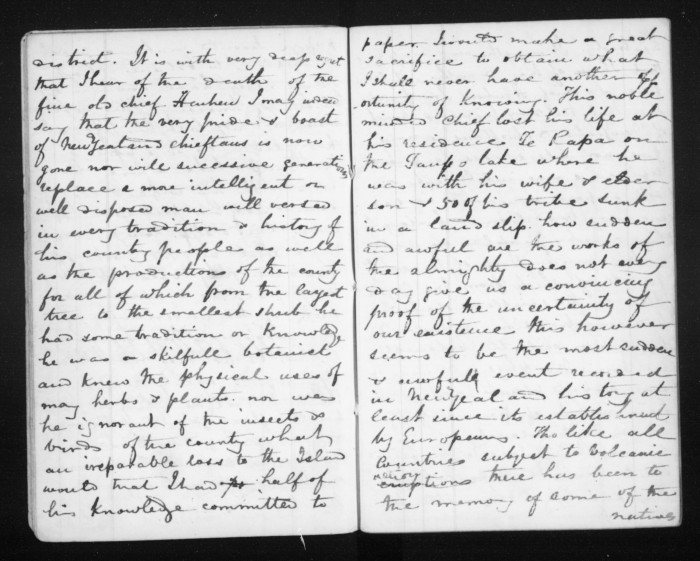 district. It is with very deep regret
that I hear of the death of the
fine old chief Heuheu I may indeed
say that the very pride & boast
of New Zealand chieftans is now
gone nor will sucessive generations
replace a more intelligent or
well disposed man well versed
in every tradition & history of
his country people as well
as the productions of the county
for all of which from the largest
tree to the smallest shrub he
had some tradition or knowledge
he was a skilfull botanist
and knew the physical uses of
many herbs & plants. nor was
he ignorant of the insects &
birds of the county what
an irreparable loss to the Island
would that I had half of
his knowledge committed to
paper I would make a great
sacrifice to obtain what
I shall never have another opp
ortunity of knowing. This noble
minded chief lost his life at
his residence Te Rapa on
the Taupo lake where he
was with his wife & elder
son & 50 of his tribe sunk
in a land slip. how sudden
and awful are the works of
the almighty does not every
day give us a convincing
proof of the uncertainty of
our existence this however
seems to be the most sudden
& awfull event recorded
in New Zealand history at
least since its establishment
by Europeans. Tho like all
countries subject to volcanic
eruptions there has been to
the memory of some of the
natives